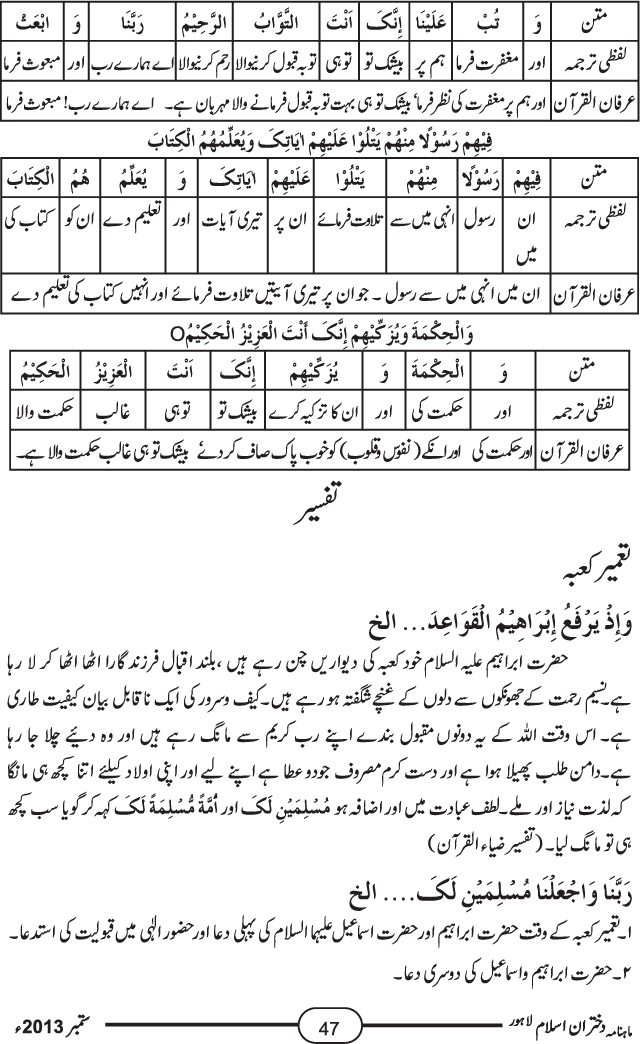 متن وَ تُبْ عَلَيْنَا إِنَّکَ اَنْتَ التَّوَّابُ الرَّحِيْمُ رَبَّنَا وَ ابْعَثْ
لفظی ترجمہ اور مغفرت فرما ہم پر بیشک تو تو ہی توبہ قبول کرنیوالا رحم کرنیوالا اے ہمارے رب اور مبعوث فرما
عرفان القرآن اور ہم پر مغفرت کی نظر فرما، بیشک تو ہی بہت توبہ قبول فرمانے والا مہربان ہے۔ اے ہمارے رب! مبعوث فرما
فِيْهِمْ رَسُوْلًا مِنْهُمْ يَتْلُوْا عَلَيْهِمْ اٰيَاتِکَ وَيُعَلِّمُهُمُ الْکِتَابَ
متن فِيْهِمْ رَسُوْلًا مِنْهُمْ يَتْلُوْا عَلَيْهِمْ اٰيَاتِکَ وَ يُعَلِّمُ هُمُ الْکِتَابَ
لفظی ترجمہ ان میں رسول انہی میں سے تلاوت فرمائے ان پر تیری آیات اور تعلیم دے ان کو کتاب کی
عرفان القرآن ان میں انہی میں سے رسول ۔ جو ان پر تیری آیتیں تلاوت فرمائے اور انہیں کتاب کی تعلیم دے
وَالْحِکْمَةَ وَيُزَکِّيْهِمْ إِنَّکَ أَنْتَ الْعَزِيْزُ الْحَکِيْمُO
متن وَ الْحِکْمَةَ وَ يُزَکِّيْهِمْ إِنَّکَ اَنْتَ الْعَزِيْزُ الْحَکِيْمُ
لفظی ترجمہ اور حکمت کی اور ان کا تزکیہ کرے بیشک تو تو ہی غالب حکمت والا
عرفان القرآن اور حکمت کی اور انکے (نفوس وقلوب) کو خوب پاک صاف کر دے، بیشک تو ہی غالب حکمت والا ہے۔
تفسیر
تعمیر کعبہ
وَإِذْ يَرْفَعُ إِبْرَاهِيْمُ الْقَوَاعِدَ... الخ
حضرت ابراہیم علیہ السلام خود کعبہ کی دیواریں چن رہے ہیں ، بلند اقبال فرزند گارا اٹھا اٹھا کر لا رہا
ہے۔ نسیم رحمت کے جھونکوں سے دلوں کے غنچے شگفتہ ہو رہے ہیں۔ کیف وسرور کی ایک ناقابل بیان کیفیت طاری
ہے۔ اس وقت اللہ کے یہ دونوں مقبول بندے اپنے رب کریم سے مانگ رہے ہیں اور وہ دئیے چلا جا رہا
ہے۔ دامن طلب پھیلا ہوا ہے اور دست کرم مصروف جود و عطا ہے اپنے لیے اور اپنی اولاد کیلئے اتنا کچھ ہی مانگا
کہ لذت نیاز اور ملے۔ لطف عبادت میں اور اضافہ ہو مُسْلِمَيْنِ لَکَ اور أُمَّةً مُّسْلِمَةً لَکَ کہہ کر گویا سب کچھ
ہی تو مانگ لیا۔ (تفسیر ضیاء القرآن)
رَبَّنَا وَاجْعَلْنَا مُسْلِمَيْنِ لَکَ.... الخ
۱۔ تعمیر کعبہ کے وقت حضرت ابراہیم اور حضرت اسماعیل علیہما السلام کی پہلی دعا اور حضور الٰہی میں قبولیت کی استدعا۔
۲۔ حضرت ابراہیم واسماعیل کی دوسری دعا۔
ماہنامہ دختران اسلام لاہور 47 ستمبر 2013ء